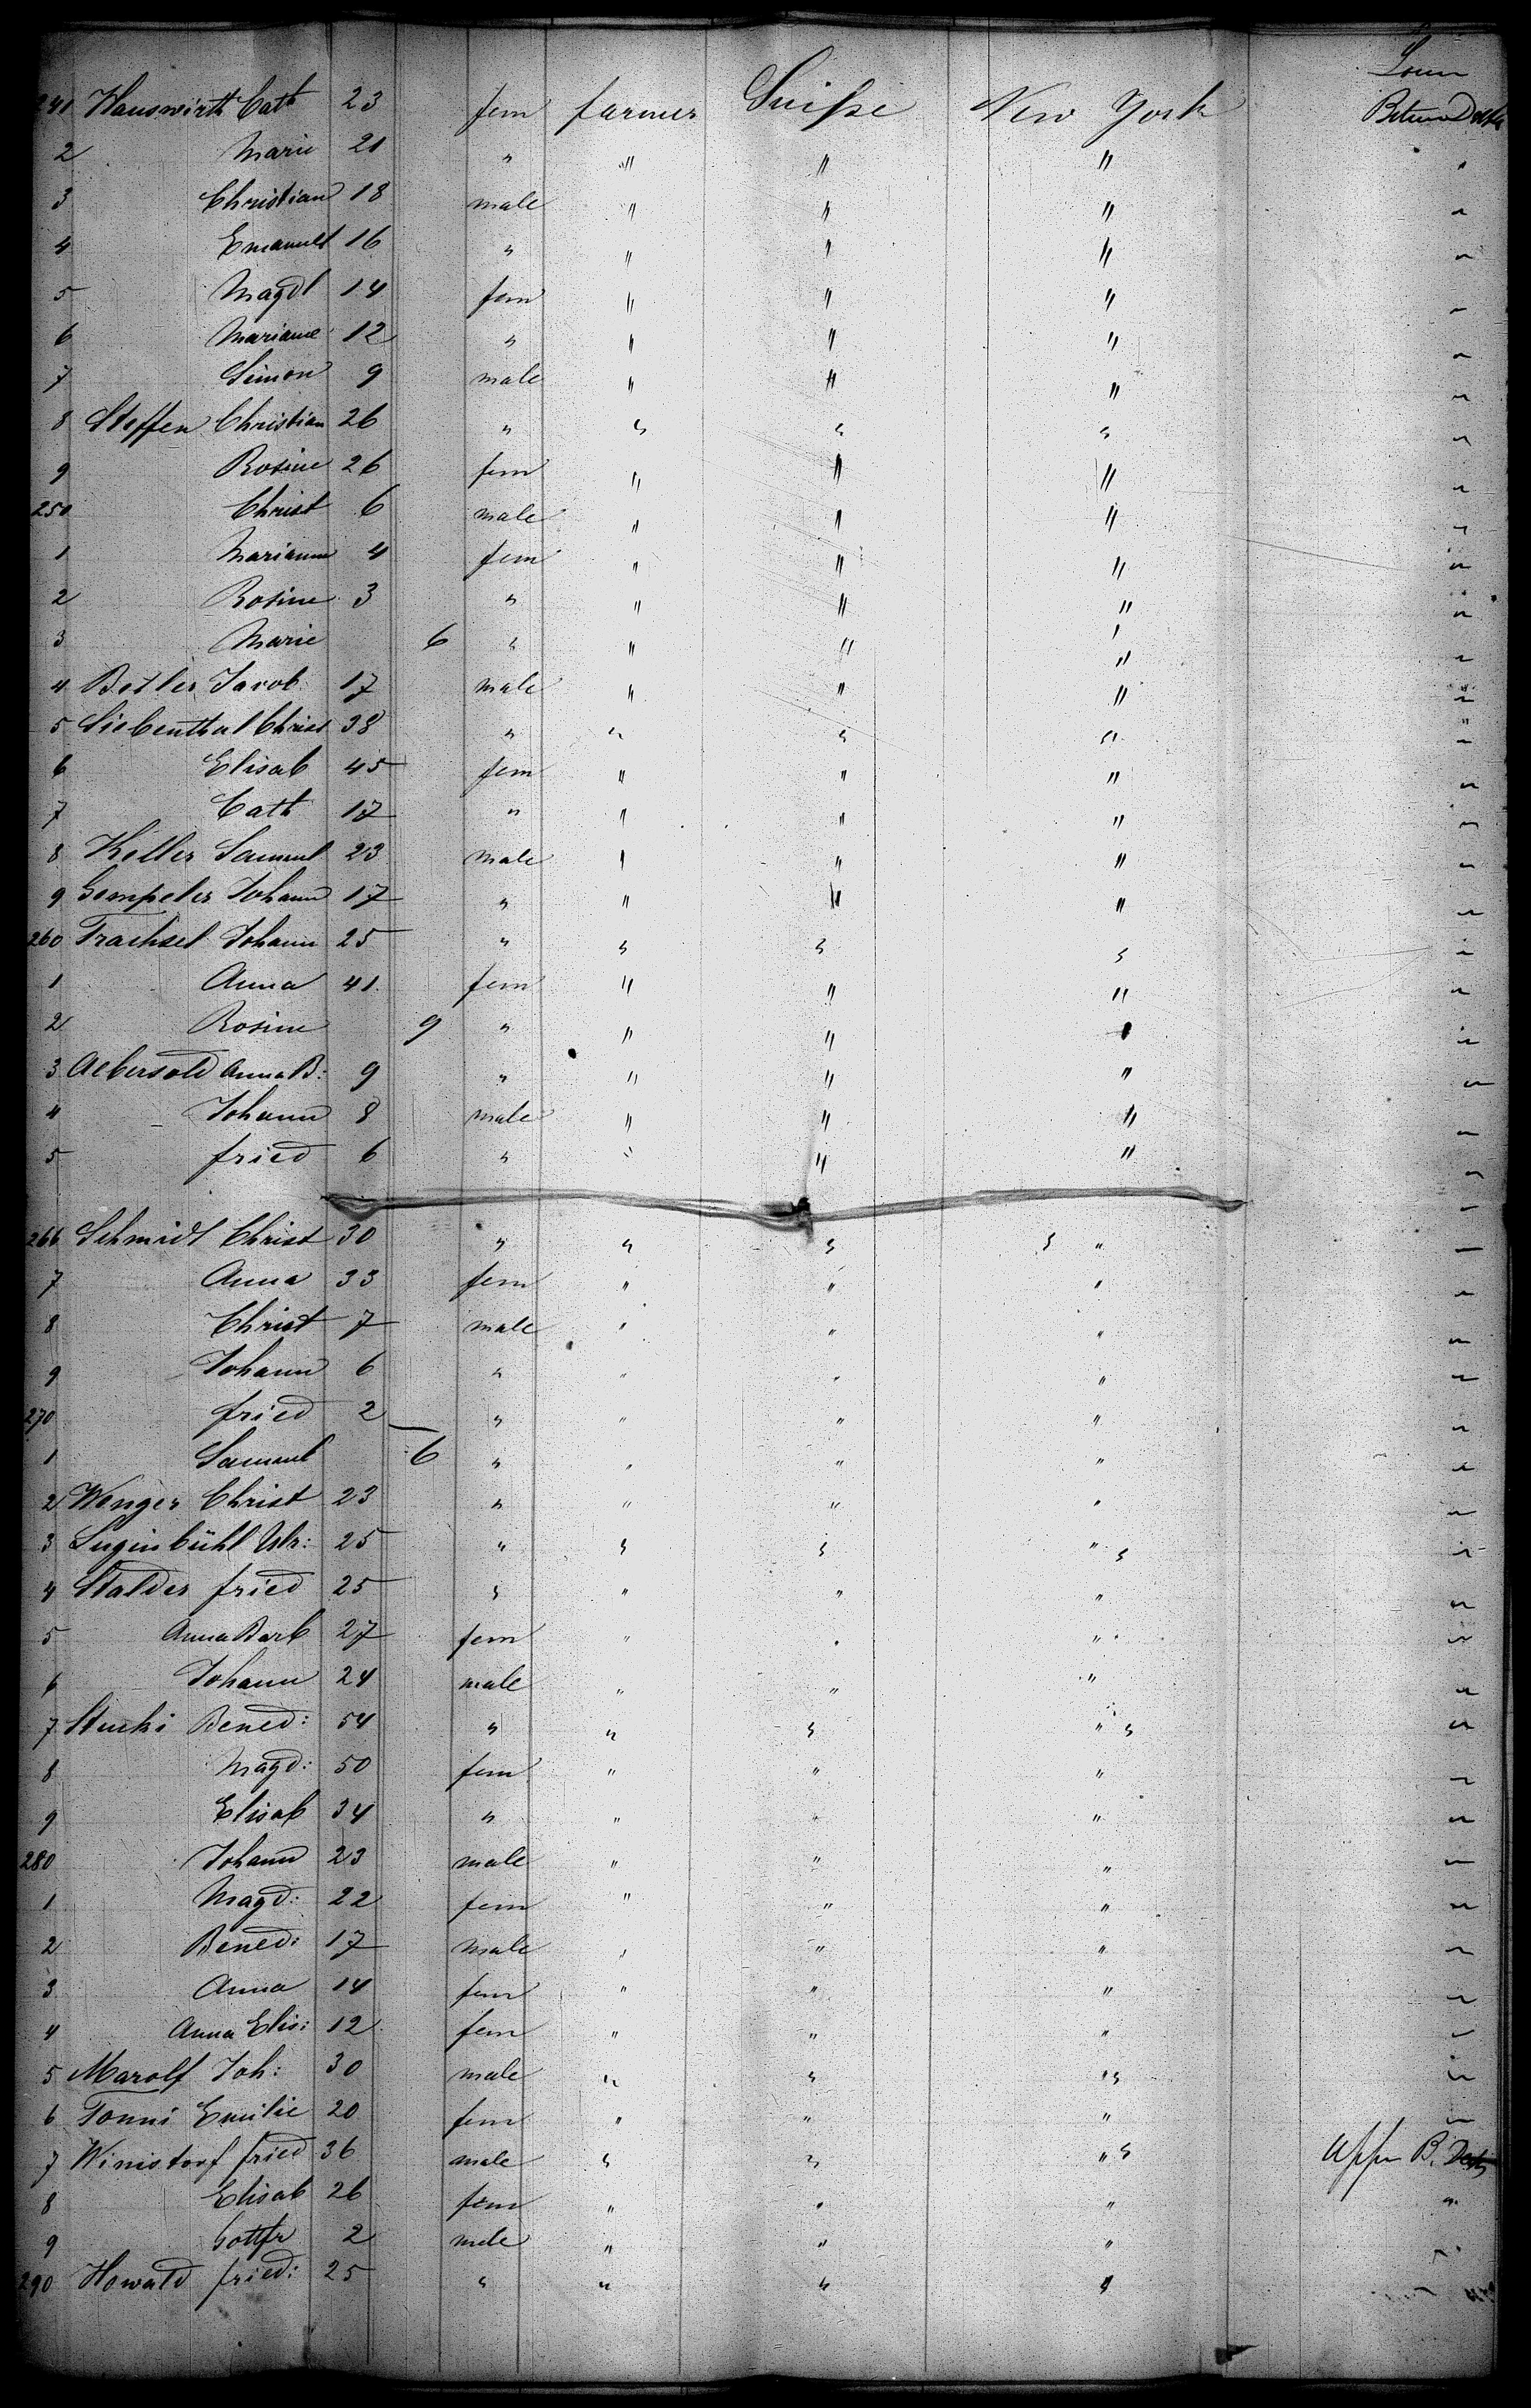 241 Hauswirth Cath 23 fem farmer Suisse New York Lower Between Decks
2 Marie 21 " " " " "
3 Christian 18 male " " " "
4 Emanuel 16 " " " " "
5 Magdl 14 fem " " " "
6 Mariane 12 " " " " "
7 Simon 9 male " " " "
8 Steffen Christian 26 " " " " "
9 Rosine 26 fem " " " "
250 Christ 6 male " " " "
1 Mariann 4 fem " " " "
2 Rosine 3 " " " " "
3 Marie 6 " " " " "
4 Betler Jacob 17 male " " " "
5 Siebenthal Christ 38 " " " " "
6 Elisab 45 fem " " " "
7 Cath 17 " " " " "
8 Keller Samuel 23 male " " " "
9 Gempeler Johann 17 " " " " "
260 Trachsel Johann 25 " " " " "
1 Anna 41 fem " " " "
2 Rosine 9 " " " " "
3 Aebersold Anna B: 9 " " " " "
4 Johann 8 male " " " "
5 fried 6 " " " " "
266 Schmidt Christ 30 " " " " "
7 Anna 33 fem " " " "
8 Christ 7 male " " " "
9 Johann 6 " " " " "
270 fried 2 " " " " "
1 Samuel 6 " " " " "
2 Wenger Christ 23 " " " " "
3 Luginbühl Ulr: 25 " " " " "
4 Stalder fried 25 " " " " "
5 Anna Barb 27 fem " " " "
6 Johann 24 male " " " "
7 Stucki Bened: 54 " " " " "
8 Magd: 50 fem " " " "
9 Elisab 34 " " " " "
280 Johann 23 male " " " "
1 Magd: 22 fem " " " "
2 Bened: 17 male " " " "
3 Anna 14 fem " " " "
4 Anna Elis: 12 fem " " " "
5 Marolf Joh: 30 male " " " "
6 Tonni Emilie 20 fem " " " "
7 Winistorf fried 36 male " " " Upper B. Decks
8 Elisab 26 fem " " " "
9 Gottfr 2 male " " " "
290 Howald fried: 25 " " " "